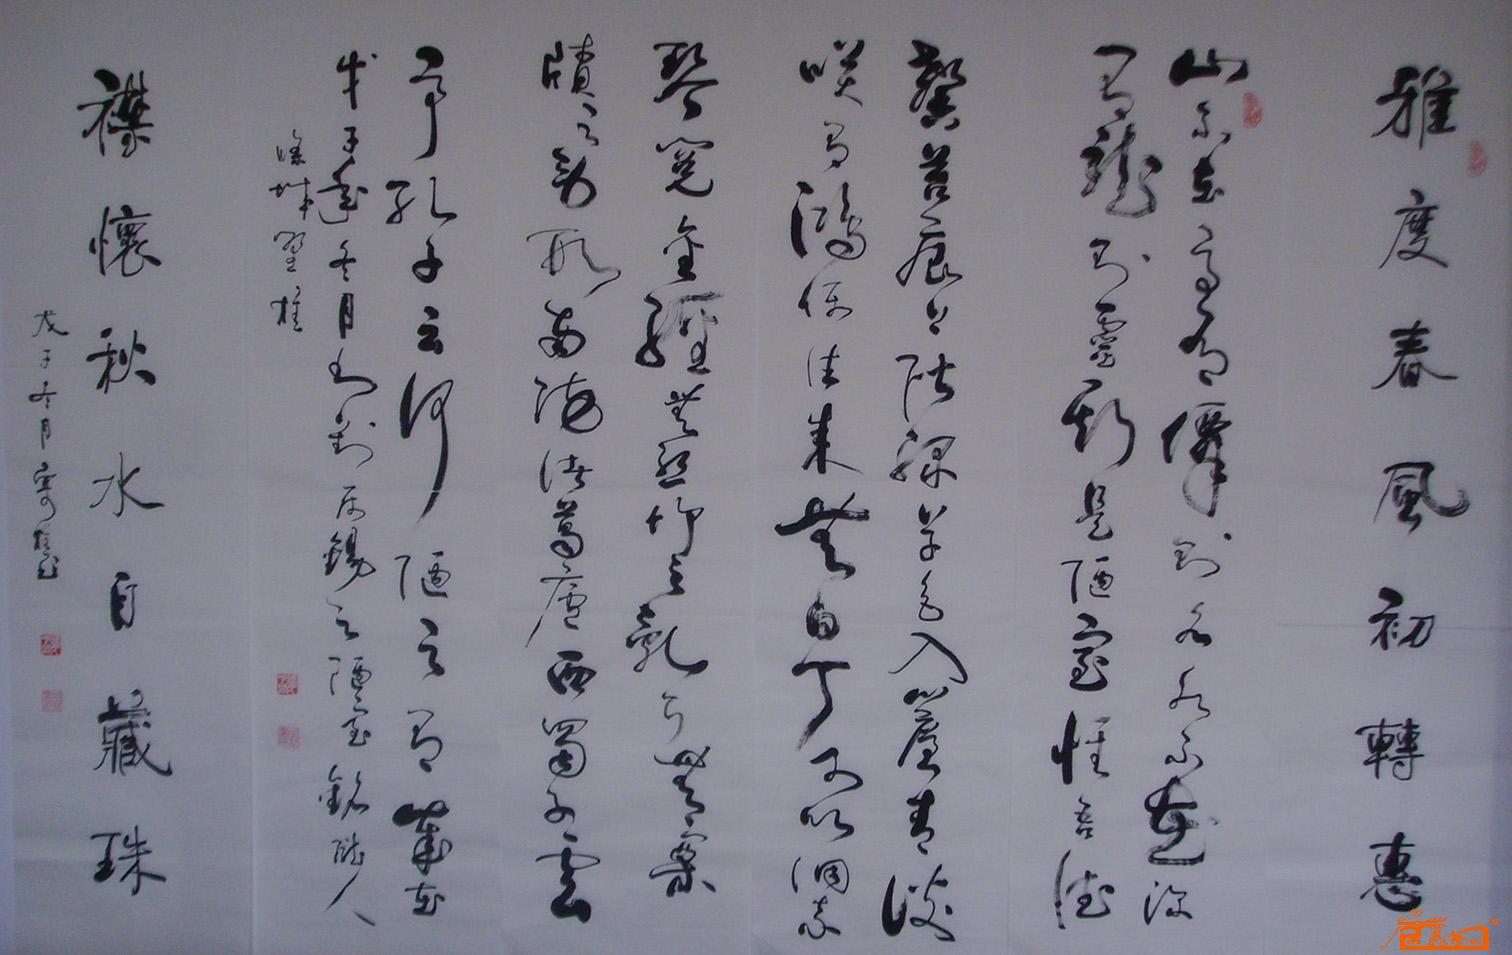 雅度春風初轉惠
山不在高有僊則名水不在深
有龍則靈斯是陋室惟吾德
馨苔痕上階綠草色入簾青談
咲有鴻儒往來無白丁可以調素
琴閱金經無絲竹之亂耳無案
牘之勞形南陽諸葛廬西蜀子雲
亭孔子云何陋之有歲在
戊子年冬月書劉禹錫之陋室銘
襟懷秋水自藏珠
戊子冬月